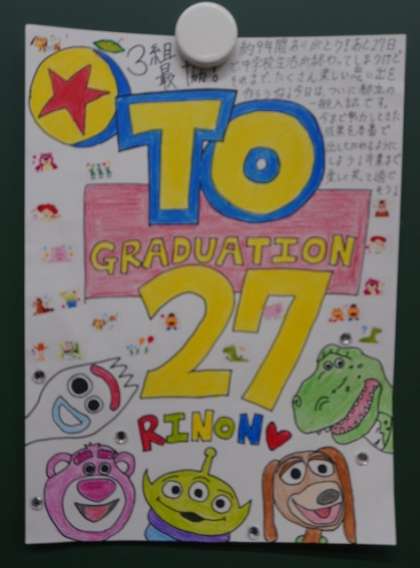 3組
最
約9年間ありがとう!あと27日
で中学校生活が終わってしまうけど
それまで、たくさん楽しい思い出を
作ろうね!今日は、ついに都立の
一般入試です。
今まで努力してきた
成果を本番で
出しきれるように
しよう!卒業まで
楽しく笑って過ご
そう
TO
GRADUATION
27
RINON